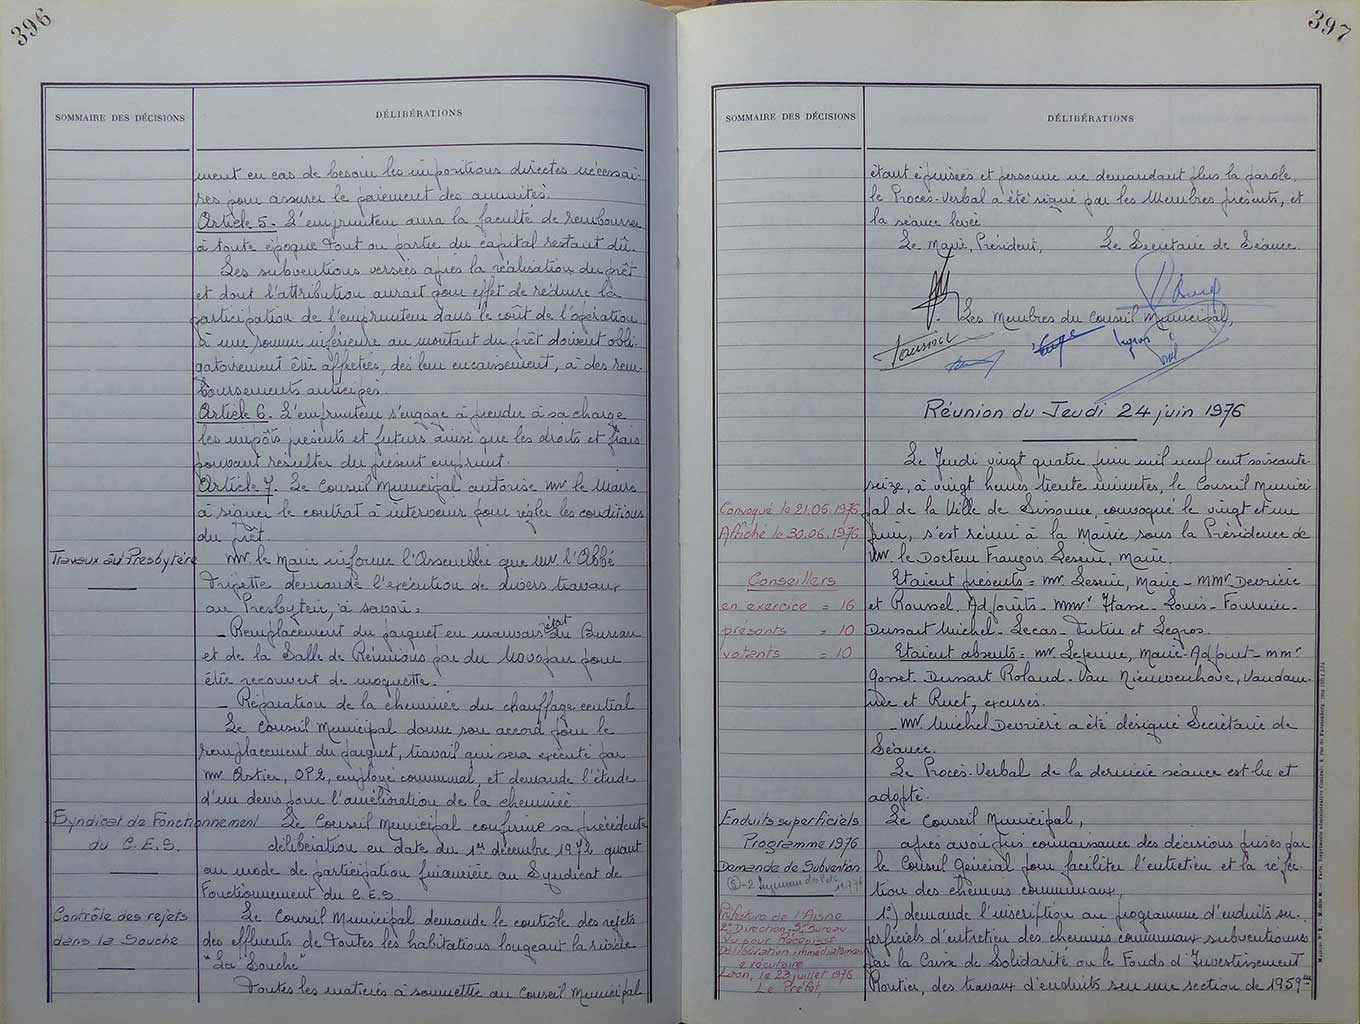 396
SOMMAIRE DES DÉCISIONS
DÉLIBÉRATIONS
ment en cas de besoin les impositions directes nécessai-
res pour assurer le paiement des annuités.
Article 5 - L'emprunteur aura la faculté de rembourser
à toute époque tout ou partie du capital restant dû.
Les subventions versées après la réalisation du prêt
et dont l'attribution aurait pour effet de réduire la
participation de l'emprunteur dans le coût de l'opération
à une somme inférieure au montant du prêt doivent obli-
gatoirement être affectées, dès leur encaissement, à des rem-
boursements anticipés.
Article 6 - L'emprunteur s'engage à prendre à sa charge
les impôts présents et futurs ainsi que les droits et frais
pouvant résulter du présent emprunt.
Article 7 - Le Conseil Municipal autorise Mr le Maire
à signer le contrat à intervenir pour régler les conditions
du prêt.
Travaux au Presbytère
Mr le Maire informe l'Assemblée que Mr l'Abbé
demande l'exécution de divers travaux
au Presbytère, à savoir :
- Remplacement du parquet en mauvais état du Bureau
et de la Salle de Réunions par du Novopan pour
être recouvert de moquette.
- Réparation de la cheminée du chauffage central
Le Conseil Municipal donne son accord pour le
remplacement du parquet, travail qui sera exécuté par
Mr Astier, OP2, employé communal, et demande l'étude
d'un devis pour l'amélioration de la cheminée
Syndicat de Fonctionnement
du C.E.S.
Le Conseil Municipal confirme sa précédente
délibération en date du 1er décembre 1972 quant
au mode de participation financière au Syndicat de
Fonctionnement du C.E.S.
Contrôle des rejets
dans la Souche
Le Conseil Municipal demande le contrôle des rejets
des effluents de toutes les habitations longeant la rivière
"La Souche"
Toutes les matières à soumettre au Conseil Municipal
397
SOMMAIRE DES DÉCISIONS
DÉLIBÉRATIONS
étant épuisées et personne ne demandant plus la parole,
le Procès-Verbal a été signé par les Membres présents, et
la séance levée
Le Maire, Président, Le Secrétaire de Séance.
Les Membres du Conseil Municipal,
Réunion du Jeudi 24 juin 1976
Le Jeudi vingt quatre juin mil neuf cent soixante-
seize, à vingt heures trente minutes, le Conseil Munici
Convoqué le 21.06.1976
pal de la Ville de Sissonne, convoqué le vingt et un
Affiché le 30.06.1976
juin, s'est réuni à la Mairie sous la Présidence de
Mr. le Docteur François Leseur, Maire.
Conseillers
Etaient présents = Mr. Leseur, Maire - MMrs Devrière
en exercice = 16
et Roussel, Adjoints - MMrs Itasse - Louis - Fournier -
présents = 10
Dussart Michel - Lecas - Tutin et Legros.
votants = 10
Etaient absents = Mr. Lejeune, Maire-Adjoint - MMrs
Gosset - Dussart Roland - Van Nieuwenhove, Vandam-
me et Ruet, excusés.
- Mr. Michel Devrière a été désigné Secrétaire de
Séance.
Le Procès-Verbal de la dernière séance est lu et
adopté.
Enduits superficiels
Programme 1976
Demande de Subvention
Le Conseil Municipal,
après avoir pris connaissance des décisions prises par
le Conseil Général pour faciliter l'entretien et la réfec-
tion des chemins communaux,
Préfecture de l'Aisne
2e Direction, 3e Bureau
Vu pour Récépissé
Délibération immédiatement
exécutoire
Laon, le 23 juillet 1976
Le Préfet,
1°) demande l'inscription au programme d'enduits su-
perficiels d'entretien des chemins communaux subventionnés
par la Caisse de Solidarité ou le Fonds d'Investissement
Routier, des travaux d'enduits sur une section de 1959m